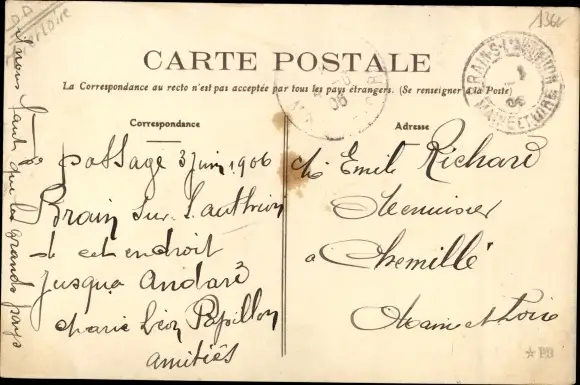 CARTE POSTALE
La Correspondance au recto n'est pas acceptée par tous les pays étrangers. (Se renseigner à la Poste)
Correspondance
Adresse
passage 3 juin 1906
Brain sur l'authion
de cet endroit
jusqua andard
marie Léon Papillon
amitiés
Mr Emile Richard
Menuisier
a Chemillé
Maine et Loire
MAINE ET LOIRE
06
PB